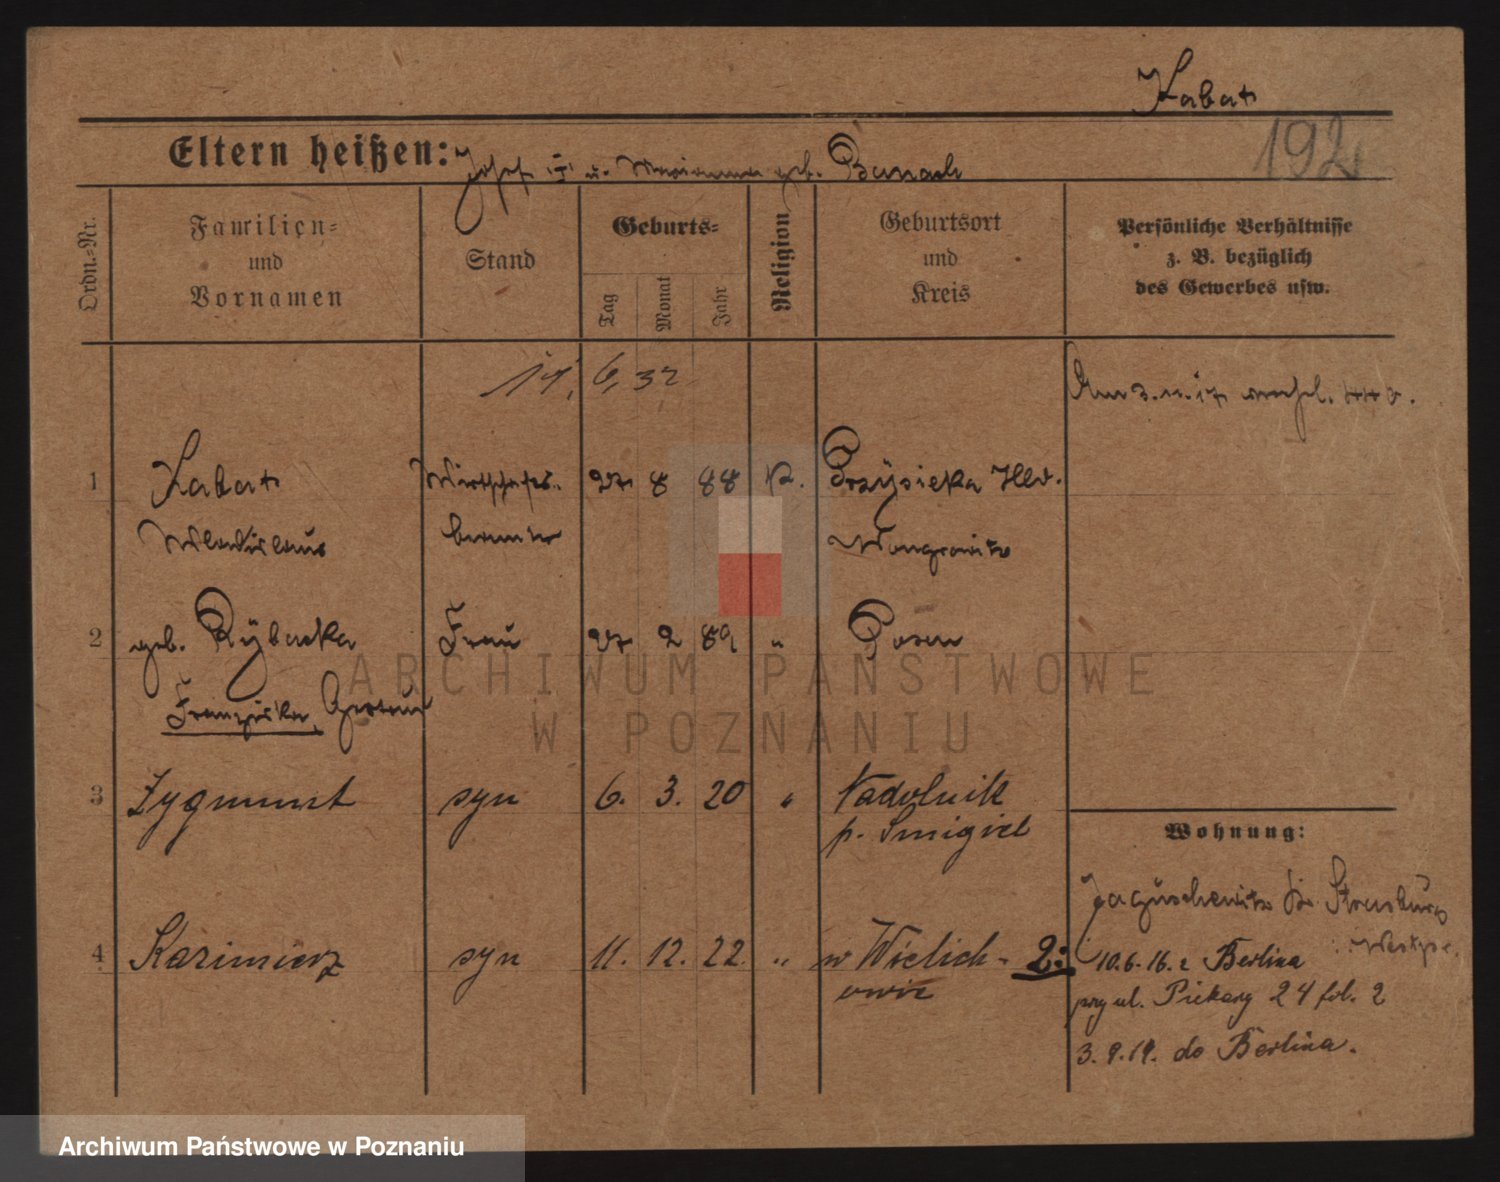 Kabat
192
Eltern heißen: Josef u. Marianna geb. Banach
Ordn.-Nr.
Familien-
und
Vornamen
Stand
Geburts-
Tag
Monat
Jahr
Religion
Geburtsort
und
Kreis
Persönliche Verhältnisse
z. B. bezüglich
des Gewerbes usw.
6, 32
1 Kabat Wirtschafts- 27 8 88 K. Przysieka
Wladislaus beamter Wongrowitz
2 geb. Rybacka Frau 27 2 89 " Posen
Franziska, Gertrud
3 Zygmunt syn 6. 3. 20 " Nadolnik
p. Śmigiel
Wohnung:
Jaguschewitz Strasburg
Westpr.
4 Kazimierz syn 11. 12. 22. " w Wielich-
owie
2: 10.6.16. z Berlina
przy ul. Piekary 24 fol. 2
3. 9. 19. do Berlina.
ARCHIWUM PAŃSTWOWE
W POZNANIU
Archiwum Państwowe w Poznaniu